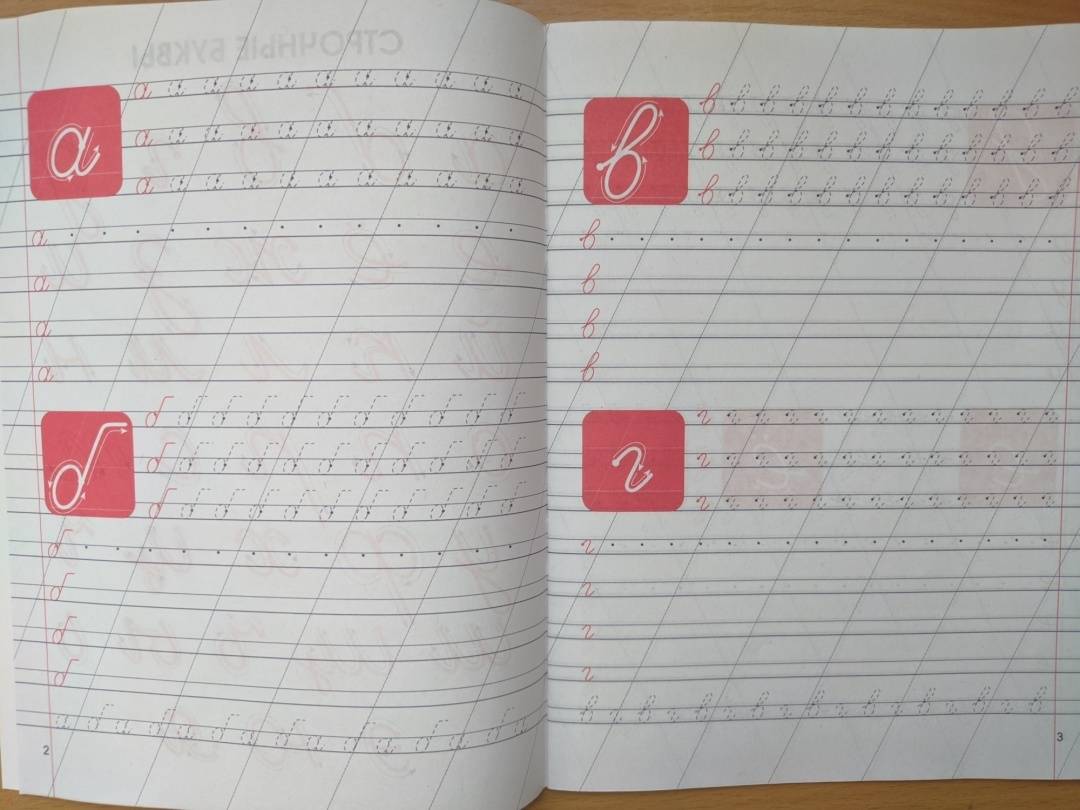 СТРОЧНЫЕ БУКВЫ
а
а а а а а а а а а а а
а а а а а а а а а а а
а а а а а а а а а а а
а
а
а
а
б
б б б б б б б б б б б
б б б б б б б б б б б
б б б б б б б б б б б
б
б
б
б
а б а б а б а б а б а б а б а
2
в
в в в в в в в в в в в в в
в в в в в в в в в в в в в
в в в в в в в в в в в в в
в
в
в
в
г
г г г г г г г г г г г г г
г г г г г г г г г г г г г
г г г г г г г г г г г г г
г
г
г
г
в г в г в г в г в г в г в г в г в
3